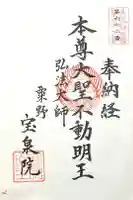 奉納経
本尊大聖不動明王
弘法大師
粟野
宝泉院